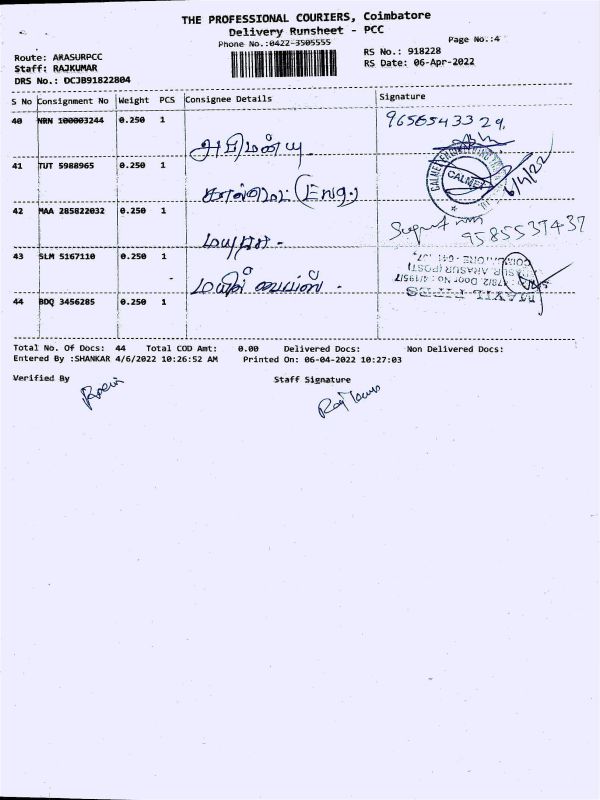 THE PROFESSIONAL COURIERS, Coimbatore
Delivery Runsheet - PCC
Phone No.:0422-3505555
Page No.:4
Route: ARASURPCC
Staff: RAJKUMAR
DRS No.: DCJB91822804
RS No.: 918228
RS Date: 06-Apr-2022
S No Consignment No Weight PCS Consignee Details Signature
40 NRN 100003244 0.250 1 9656543329,
அபிமன்யு
41 TUT 5988965 0.250 1
CALMET 6/4/22
கால்மெட் (Eng.)
42 MAA 285822032 0.250 1
9585537437
மயூரா -
43 SLM 5167110 0.250 1
மயில் பைப்ஸ் -
MAYIL PIPES
44 BDQ 3456285 0.250 1
Total No. Of Docs: 44 Total COD Amt: 0.00 Delivered Docs: Non Delivered Docs:
Entered By :SHANKAR 4/6/2022 10:26:52 AM Printed On: 06-04-2022 10:27:03
Verified By Staff Signature